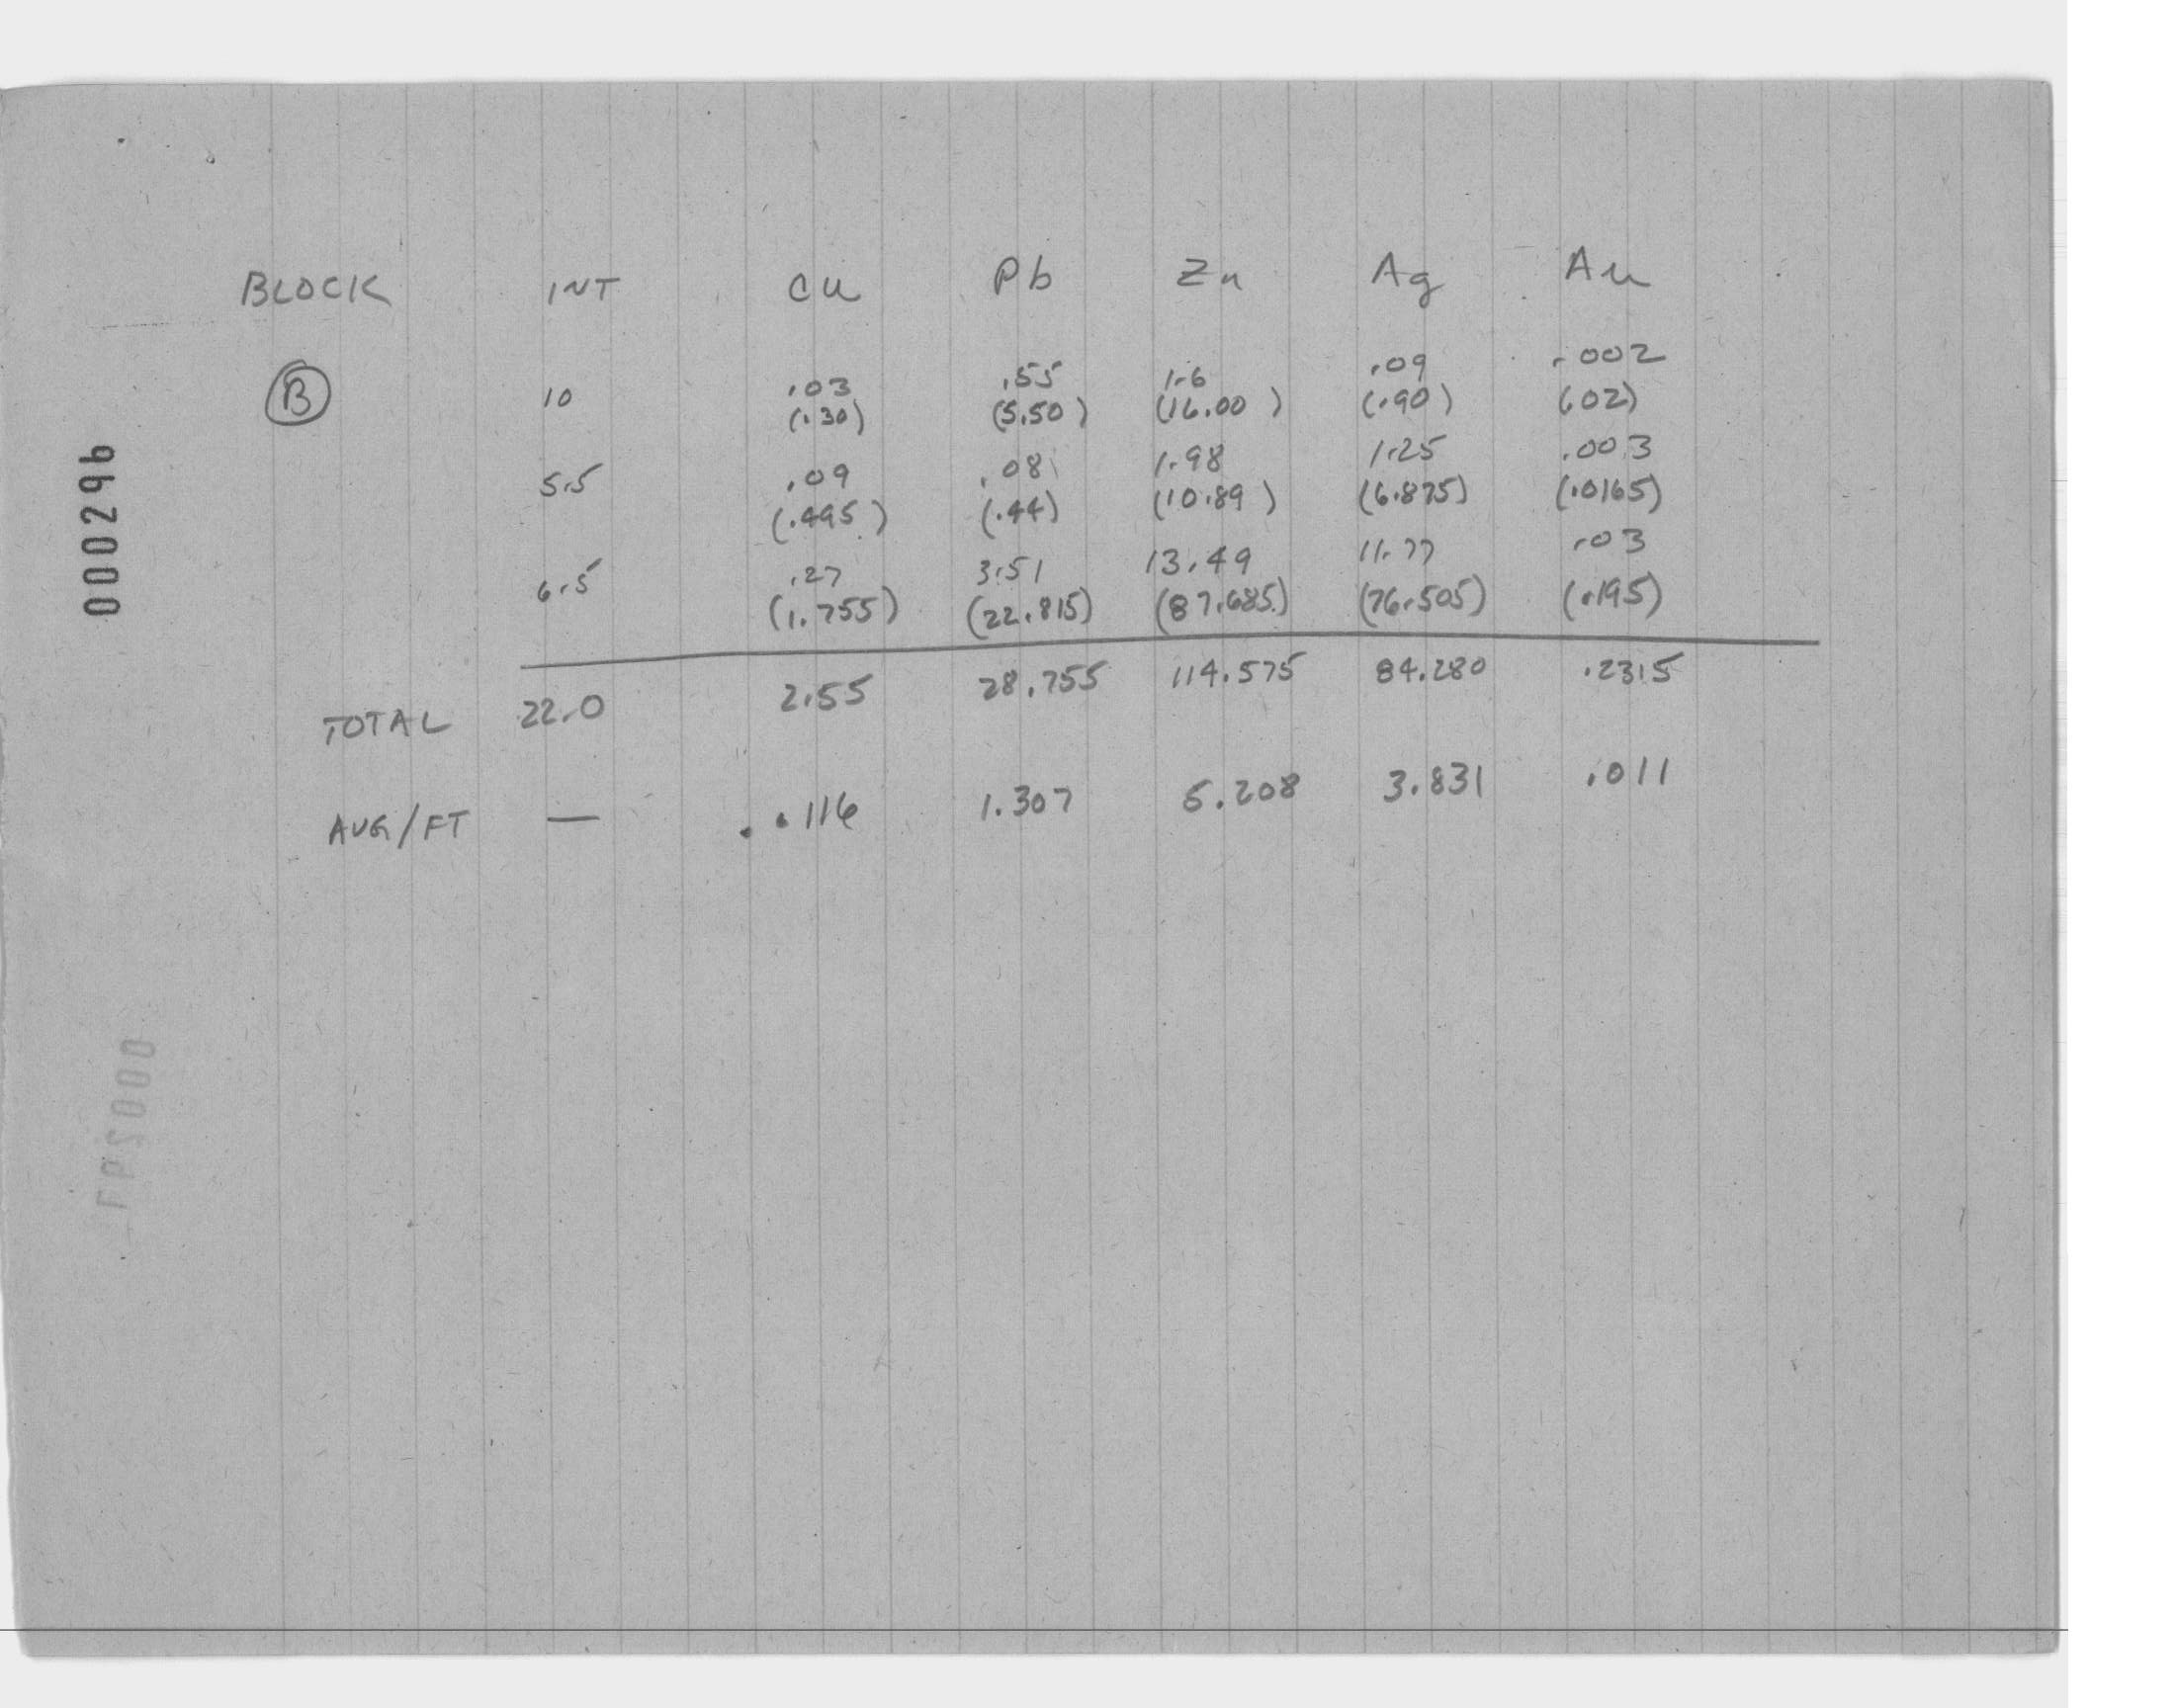 BLOCK INT Cu Pb Zn Ag Au
B 10 .03 .55 1.6 .09 .002
(.30) (5.50) (16.00) (.90) (.02)
5.5 .09 .08 1.98 1.25 .003
(.495) (.44) (10.89) (6.875) (.0165)
6.5 .27 3.51 13.49 11.77 .03
(1.755) (22.815) (87.685) (76.505) (.195)
TOTAL 22.0 2.55 28.755 114.575 84.280 .2315
AVG/FT — .116 1.307 5.208 3.831 .011
000296